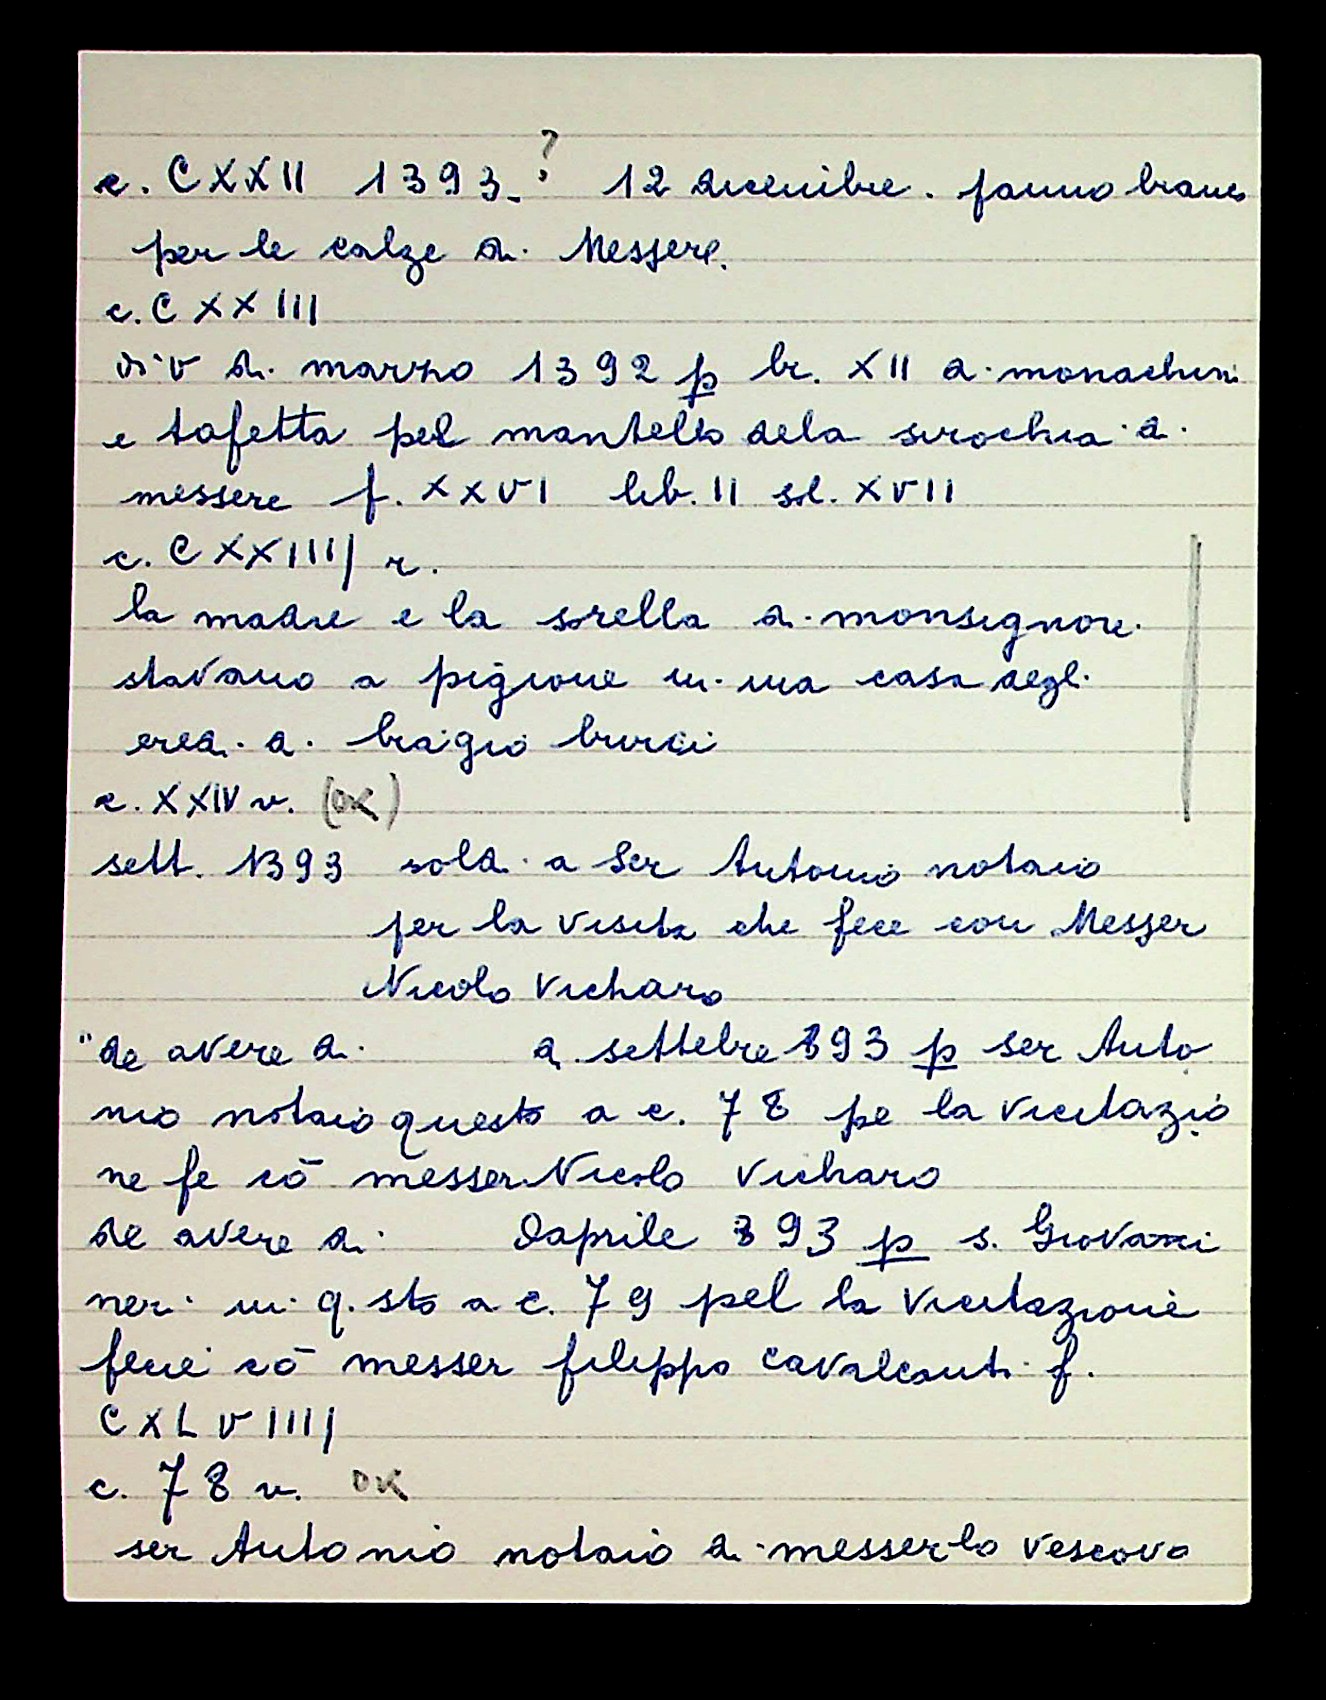 ?
c. CXXII 1393. 12 dicembre. panno biancho
per le calze di Messere.
c. CXXIII
di V di marzo 1392 p br. XII di monachin
e tafetta pel mantello dela sirochia di
messere f. XXVI lib. II sol. XVII
c. CXXIIII r.
la madre e la sorella di monsignore
stavano a pigione in una casa degli
eredi di biagio
c. XXIV v. (OK)
sett. 1393 soldi a Ser Antonio notaio
per la visita che fece con Messer
Nicolo Vicharo
"de avere di di settebre 393 p ser Anto
nio notaio questo a c. 78 pe la vicitazio
ne fe cō messer Nicolo Vicharo
de avere di Daprile 393 p s. Giovanni
neri in q.sto a c. 79 pel la vicitazione
fecie cō messer filippo cavalcanti f.
CXLVIIII
c. 78 v. OK
ser Antonio notaio di messer lo vescovo